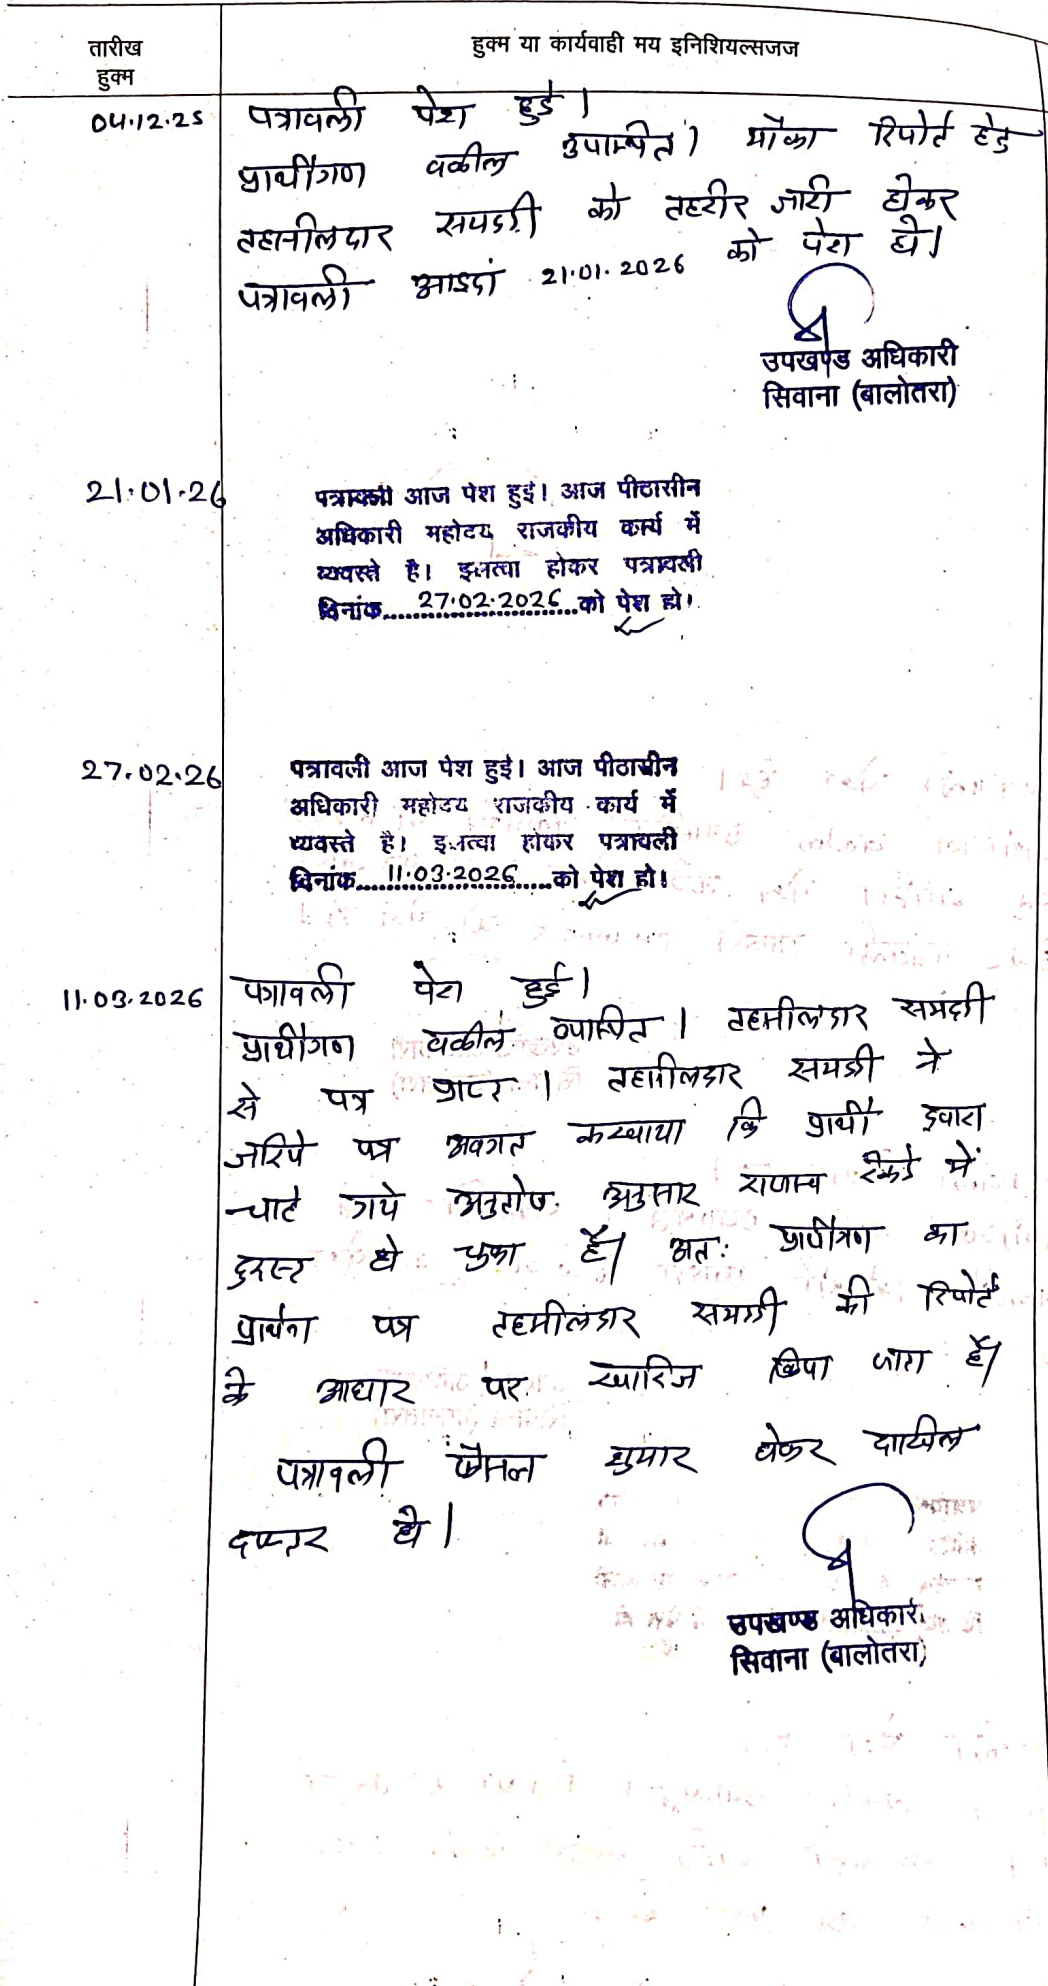 तारीख
हुक्म
हुक्म या कार्यवाही मय इनिशियल्सजज
04.12.25
पत्रावली पेश हुई।
प्रार्थीगण वकील उपस्थित। मौका रिपोर्ट हेतु
तहसीलदार समदड़ी को तहरीर जारी होकर
पत्रावली आइंदा 21.01.2026 को पेश हो।
उपखण्ड अधिकारी
सिवाना (बालोतरा)
21.01.26
पत्रावली आज पेश हुई। आज पीठासीन
अधिकारी महोदय राजकीय कार्य में
व्यवस्ते है। इल्तवा होकर पत्रावली
दिनांक 27.02.2026 को पेश हो।
27.02.26
पत्रावली आज पेश हुई। आज पीठासीन
अधिकारी महोदय राजकीय कार्य में
व्यवस्ते है। इल्तवा होकर पत्रावली
दिनांक 11.03.2026 को पेश हो।
11.03.2026
पत्रावली पेश हुई।
प्रार्थीगण वकील उपस्थित। तहसीलदार समदड़ी
से पत्र प्राप्त। तहसीलदार समदड़ी ने
जरिये पत्र अवगत करवाया कि प्रार्थी द्वारा
चाहे गये अनुतोष अनुसार राजस्व रेकर्ड में
दुरस्त हो चुका है। अतः प्रार्थीगण का
प्रार्थना पत्र तहसीलदार समदड़ी की रिपोर्ट
के आधार पर खारिज किया जाता है।
पत्रावली फैसल शुमार होकर दाखिल
दफ्तर हो।
उपखण्ड अधिकारी
सिवाना (बालोतरा)